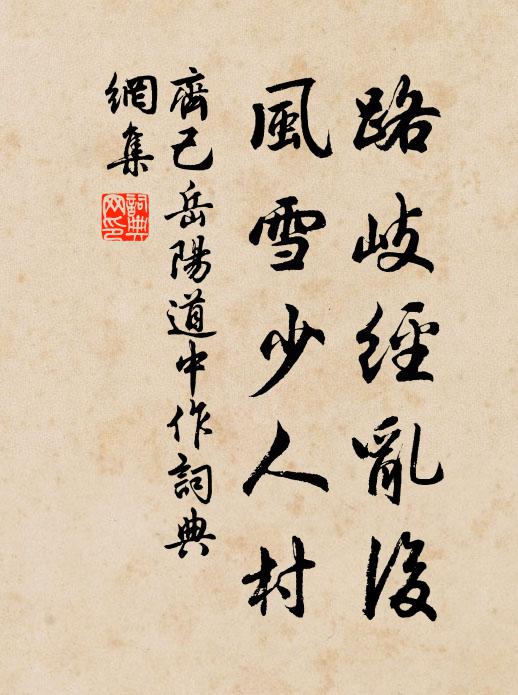 路歧經亂後
風雪少人村
齊己岳陽道中作詞典
網集
詞典
网印